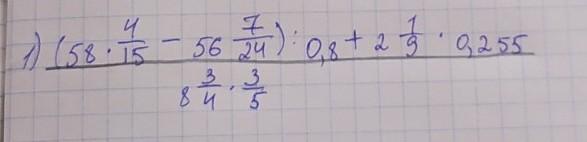 1) (58 · 4/15 − 56 7/24) : 0,8 + 2 1/9 · 0,255
8 3/4 · 3/5